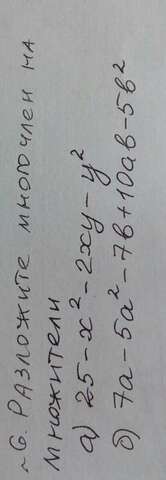 ~6. РАЗЛОЖИТЕ МНОГОЧЛЕН НА
множители
а) 25-x²-2xy-y²
б) 7a-5a²-7b+10ab-5b²